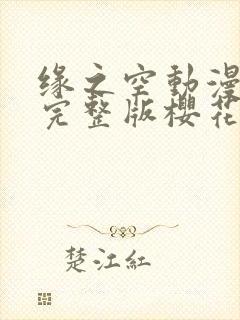 缘之空動漫
完整版櫻花
楚江紅